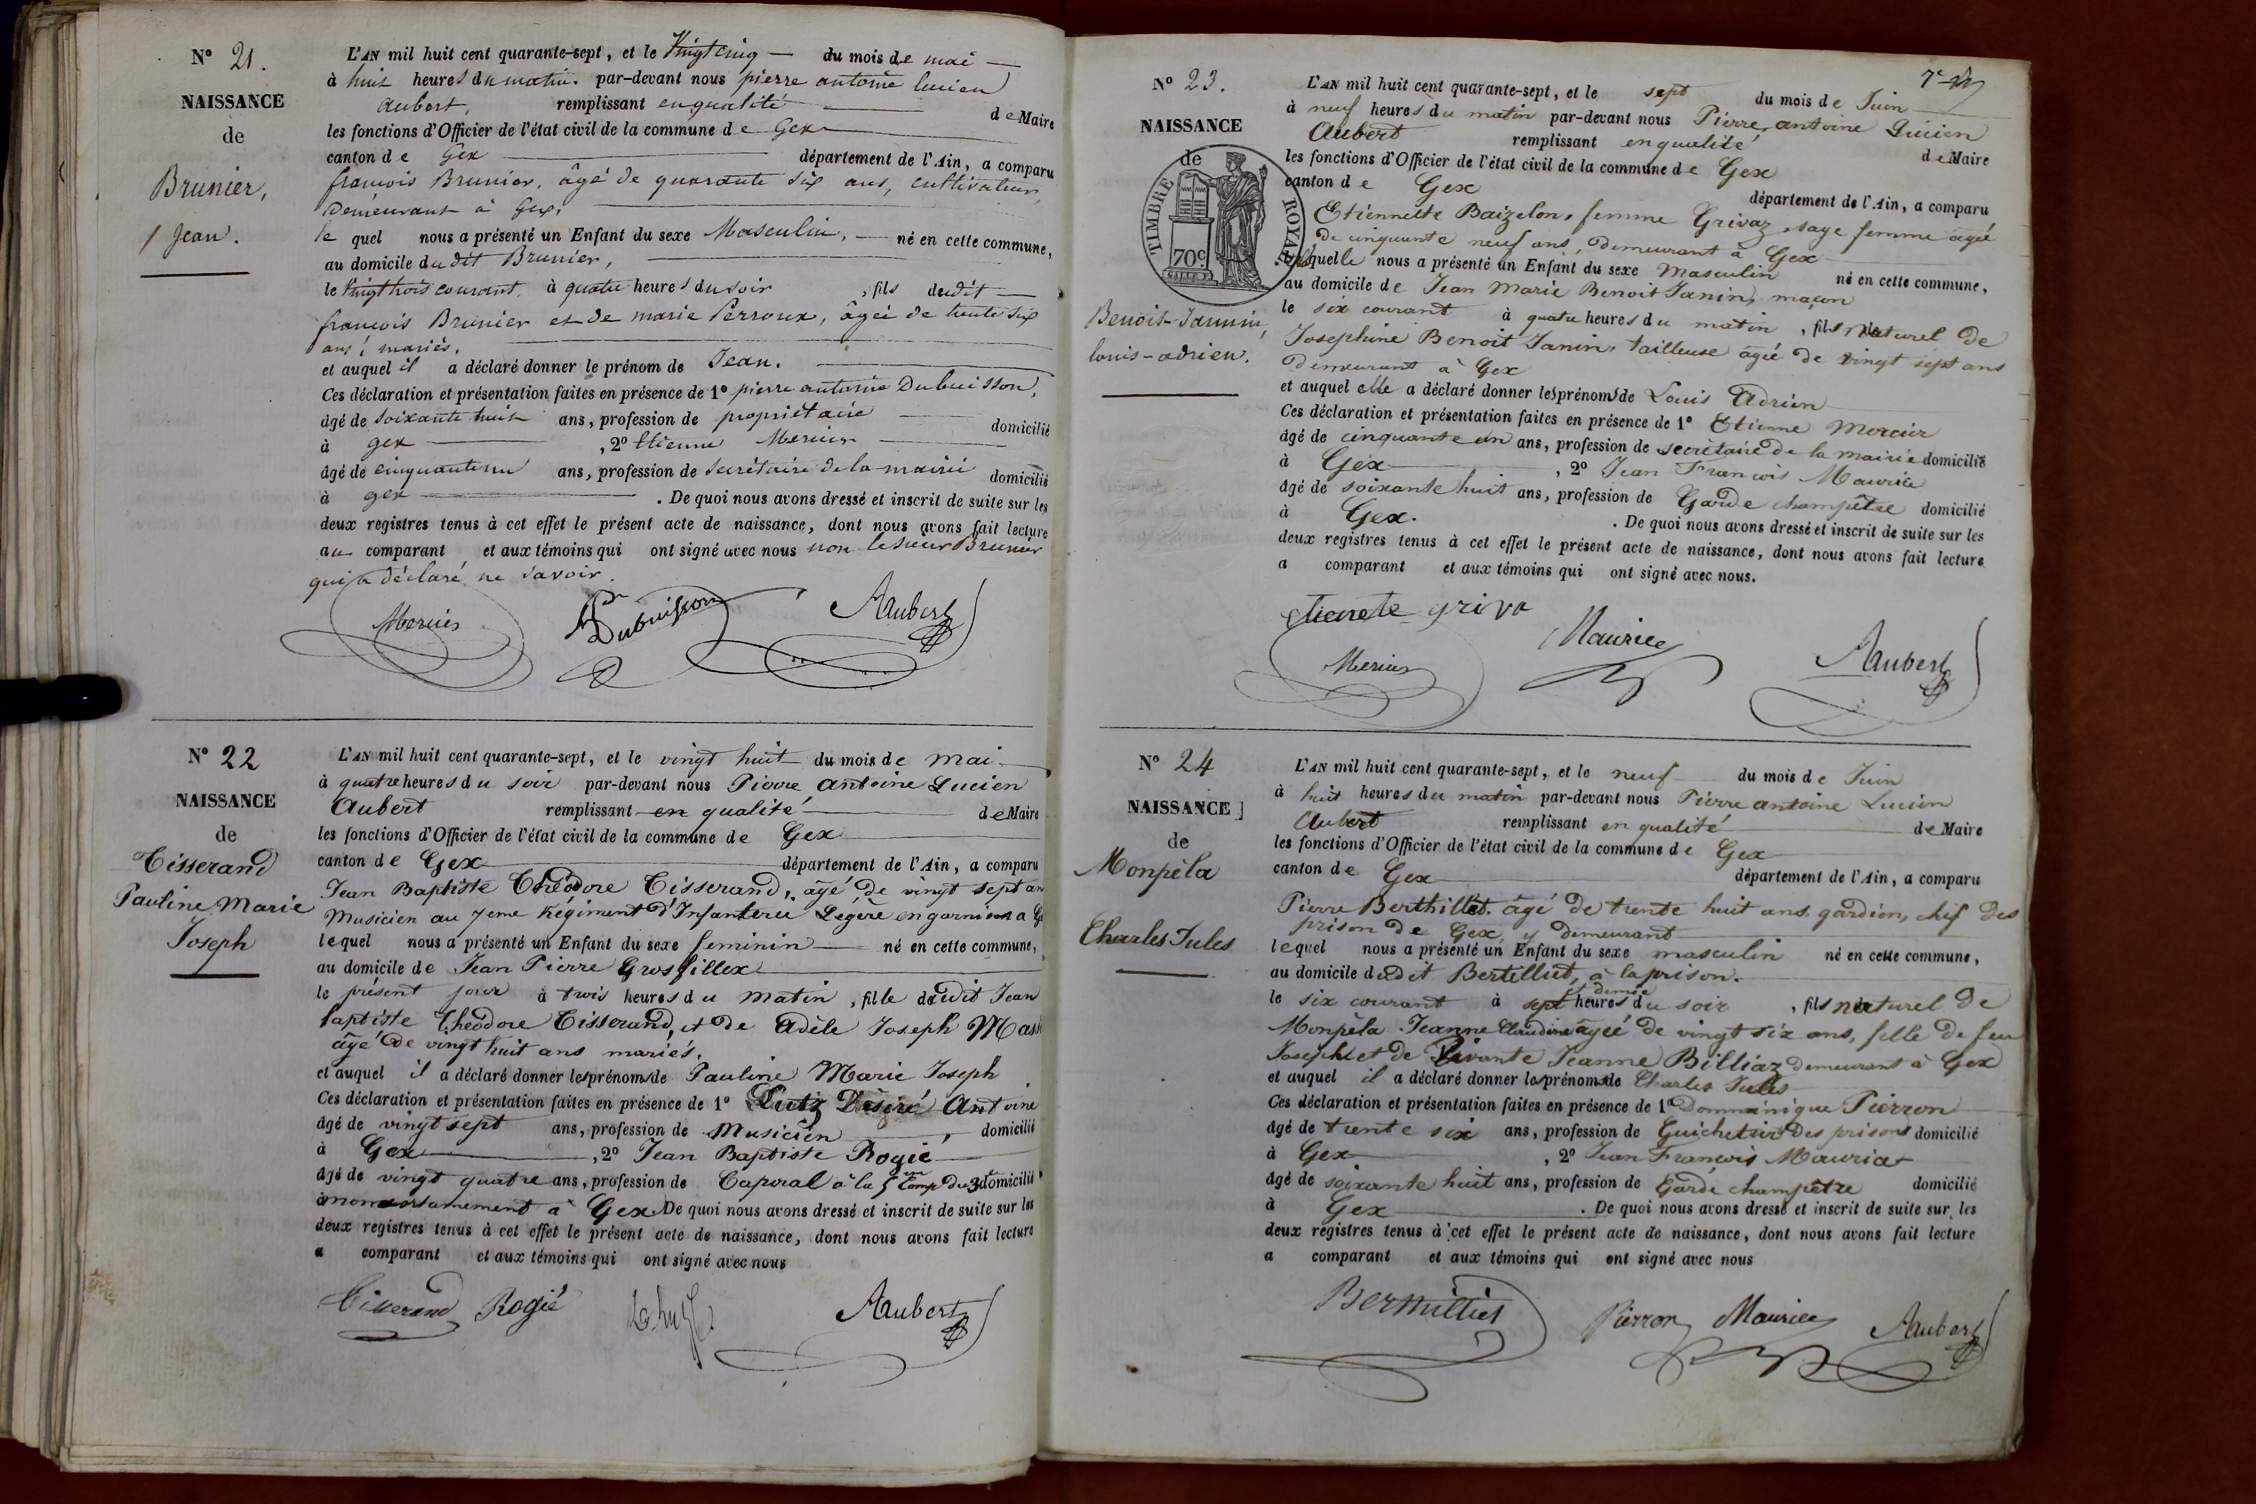 N° 21.
NAISSANCE
de
Brunier,
Jean.
L'AN mil huit cent quarante-sept, et le Vingt cinq du mois de mai
à huit heures du matin par-devant nous pierre antoine lucien
aubert, remplissant en qualité de Maire
les fonctions d'Officier de l'état civil de la commune de Gex
canton de Gex département de l'Ain, a comparu
françois Brunier, âgé de quarante six ans, cultivateur,
demeurant à Gex,
le quel nous a présenté un Enfant du sexe Masculin, né en cette commune,
au domicile dudit Brunier,
le Vingt trois courant, à quatre heures du soir, fils dudit
françois Brunier et de marie Perroux, âgée de trente six
ans, mariés.
et auquel il a déclaré donner le prénom de Jean.
Ces déclaration et présentation faites en présence de 1° pierre antoine Dubuisson,
âgé de soixante huit ans, profession de propriétaire domicilié
à gex, 2° Etienne Mercier
âgé de cinquante un ans, profession de secrétaire de la mairie domicilié
à gex. De quoi nous avons dressé et inscrit de suite sur les
deux registres tenus à cet effet le présent acte de naissance, dont nous avons fait lecture
au comparant et aux témoins qui ont signé avec nous non le sieur Brunier
qui a déclaré ne savoir.
Mercier Dubuisson Aubert
N° 22
NAISSANCE
de
Tisserand
Pauline Marie
Joseph
L'AN mil huit cent quarante-sept, et le vingt huit du mois de mai
à quatre heures du soir par-devant nous Pierre Antoine Lucien
Aubert remplissant en qualité de Maire
les fonctions d'Officier de l'état civil de la commune de Gex
canton de Gex département de l'Ain, a comparu
Jean Baptiste Théodore Tisserand, âgé de vingt sept an
Musicien au 7eme Régiment d'Infanterie Légère en garnison a G
lequel nous a présenté un Enfant du sexe feminin né en cette commune,
au domicile de Jean Pierre Grosfillex
le présent jour à trois heures du matin, fille dudit Jean
baptiste théodore Tisserand, et de Adèle Joseph Mas
âgé de vingt huit ans mariés.
et auquel il a déclaré donner les prénoms de Pauline Marie Joseph
Ces déclaration et présentation faites en présence de 1° Lutz Désiré Antoine
âgé de vingt sept ans, profession de Musicien domicilié
à Gex, 2° Jean Baptiste Rogié
âgé de vingt quatre ans, profession de Caporal à la 5 Comp du 3 domicilié
à Gex De quoi nous avons dressé et inscrit de suite sur les
deux registres tenus à cet effet le présent acte de naissance, dont nous avons fait lecture
a comparant et aux témoins qui ont signé avec nous
Tisserand Rogié Aubert
7e
N° 23.
NAISSANCE
de
TIMBRE ROYAL
70c
Benoit-Jannin,
louis-adrien.
L'AN mil huit cent quarante-sept, et le sept du mois de Juin
à neuf heures du matin par-devant nous Pierre, antoine Lucien
Aubert remplissant en qualité de Maire
les fonctions d'Officier de l'état civil de la commune de Gex
canton de Gex département de l'Ain, a comparu
Etiennette Baizelon, femme Grivaz, sage femme agée
de cinquante neuf ans, demeurant à Gex
laquelle nous a présenté un Enfant du sexe Masculin né en cette commune,
au domicile de Jean Marie Benoit Janin, maçon
le six courant à quatre heures du matin, fils naturel de
Josephine Benoit Janin, tailleuse agée de vingt sept ans
demeurant à Gex
et auquel elle a déclaré donner les prénoms de Louis Adrien
Ces déclaration et présentation faites en présence de 1° Etienne Mercier
âgé de cinquante un ans, profession de secrétaire de la mairie domicilié
à Gex, 2° Jean François Maurice
âgé de soixante huit ans, profession de Garde champêtre domicilié
à Gex. De quoi nous avons dressé et inscrit de suite sur les
deux registres tenus à cet effet le présent acte de naissance, dont nous avons fait lecture
a comparant et aux témoins qui ont signé avec nous.
griva
Mercier Maurice Aubert
N° 24
NAISSANCE
de
Monpèla
Charles Jules
L'AN mil huit cent quarante-sept, et le neuf du mois de Juin
à huit heures du matin par-devant nous Pierre antoine Lucien
Aubert remplissant en qualité de Maire
les fonctions d'Officier de l'état civil de la commune de Gex
canton de Gex département de l'Ain, a comparu
Pierre Berthillet, âgé de trente huit ans, gardien, chef des
prison de Gex, y demeurant
lequel nous a présenté un Enfant du sexe masculin né en cette commune,
au domicile dudit Bertilliet, à la prison.
le six courant à sept heures et demie du soir, fils naturel de
Monpèla Jeanne Claudine âgée de vingt six ans, fille de feu
Joseph et de Vivante Jeanne Billiaz demeurant à Gex
et auquel il a déclaré donner les prénoms de Charles Jules
Ces déclaration et présentation faites en présence de 1° Domminique Pierron
âgé de trente six ans, profession de Guichetier des prisons domicilié
à Gex, 2° Jean François Maurice
âgé de soixante huit ans, profession de Garde champêtre domicilié
à Gex. De quoi nous avons dressé et inscrit de suite sur les
deux registres tenus à cet effet le présent acte de naissance, dont nous avons fait lecture
a comparant et aux témoins qui ont signé avec nous
Berthilliet Pierron Maurice Aubert